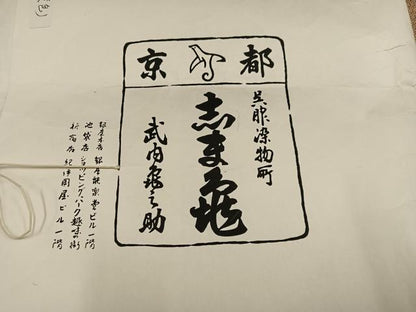 京都
呉服染物司
志ま亀
武内亀之助
銀座本店 銀座能楽堂ビル一階
池袋店 ショッピングパーク趣味街
新宿店 紀伊國屋ビル一階